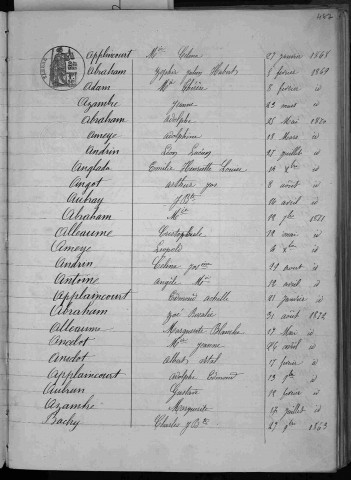 447
Applincourt Mie Céline 27 janvier 1868
Abraham Zéphir Julien Hubert 5 février 1869
Adam Mie Thérèse 8 février id
Azambre Jeanne 22 mars id
Abraham Adolphe 25 Mai 1870
Ameye Adolphine 18 Mars id
Andrin Léon Lucien 25 juillet id
Anglada Emilie Henriette Louise 14 Xbre id
Angot Arthur 8 août id
Aubray J. Bte 14 avril id
Abraham Mie 12 9bre 1871
Alleaume 12 mai id
Ameye Léopold 6 Xbre id
Andrin Céline 29 août id
Antoine Angèle Mie 12 avril id
Applaincourt Edmond Achille 21 Janvier id
Abraham Zoé Rosalie 31 août 1872
Alleaume Marguerite Blanche 17 Mai id
Anedot Mie Jeanne 26 avril id
Anedot Albert 17 février id
Applaincourt Adolphe Edmond 13 id
Aubrun Gustave 18 février id
Azambre Marguerite 17 juillet id
Bachy Charles J. Bte 27 9bre 1863